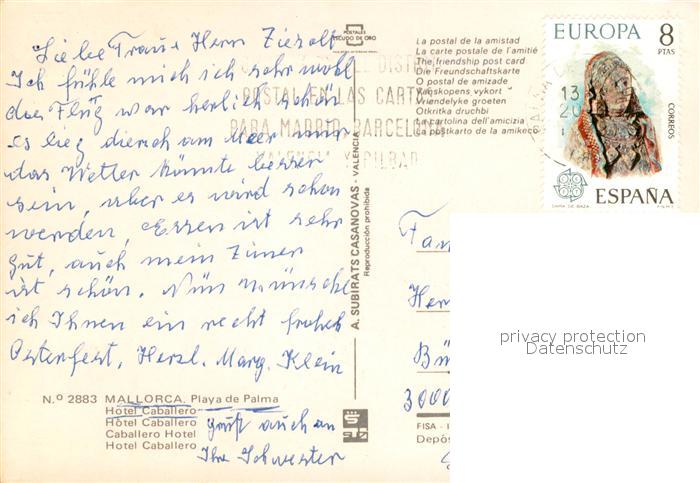 Liebe Frau u Herrn Zierolt
Ich fühle mich ich sehr wohl
das Flüg war herlich schön
es lieg dierch am Meer nur
das Wetter könnte besser
sein, aber es wird schon
werden, Essen ist sehr
gut, auch mein Zimer
ist schön. Nün wünsche
ich Ihnen ein recht frohes
Osterfest, Herzl. Marg. Klein
Nº 2883 MALLORCA. Playa de Palma
Hotel Caballero
Hotel Caballero
Caballero Hotel
Hotel Caballero
grüßt auch an
Ihre Schwester
POSTALES
ESCUDO DE ORO
A. SUBIRATS CASANOVAS - VALENCIA
Reproducción prohibida
La postal de la amistad
La carte postale de l'amitié
The friendship post card
Die Freundschaftskarte
O postal de amizade
Vänskapens vykort
Vriendelyke groeten
Otkritka druchbi
La cartolina dell'amicizia
La postkarto de la amikeco
DISTR
POSTAL EN LAS CARTAS
PARA MADRID BARCELONA
VALENCIA Y BILBAO
13
EUROPA 8
PTAS
CORREOS
ESPAÑA
DAMA DE BAZA
Fam
Her
Bü
3000
FISA - I
Depós
privacy protection
Datenschutz